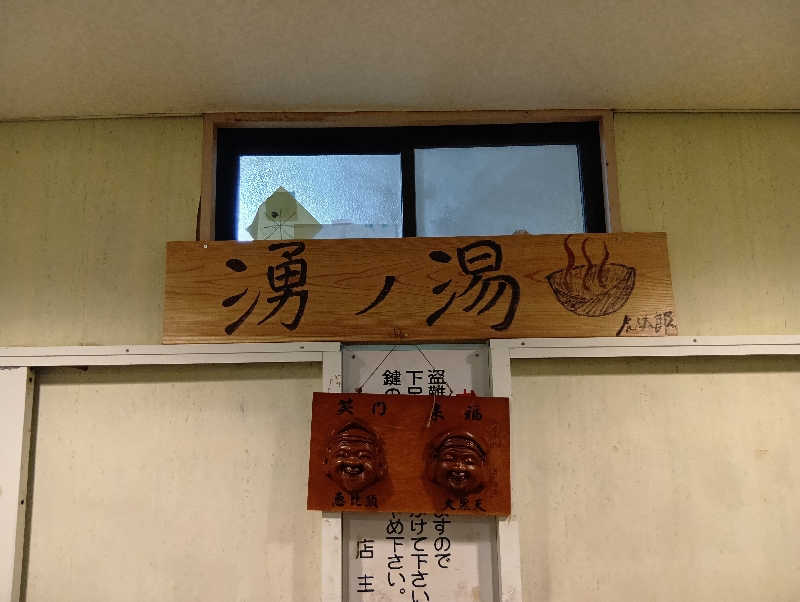 湧ノ湯
笑門来福
恵比須
大黒天
盗難
下足
鍵の
ますので
かけて下さい
やめ下さい。
店主